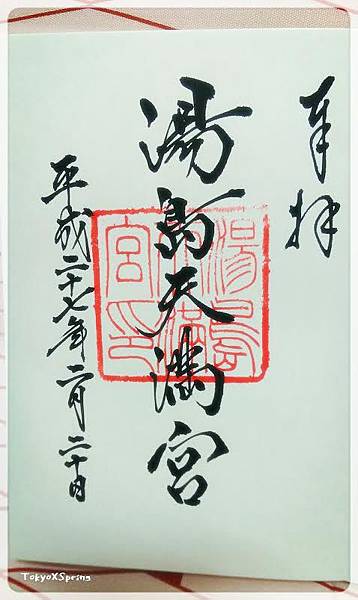 奉拝
湯島天満宮
湯島
天満
宮印
平成二十七年二月二十日
TokyoXSpring